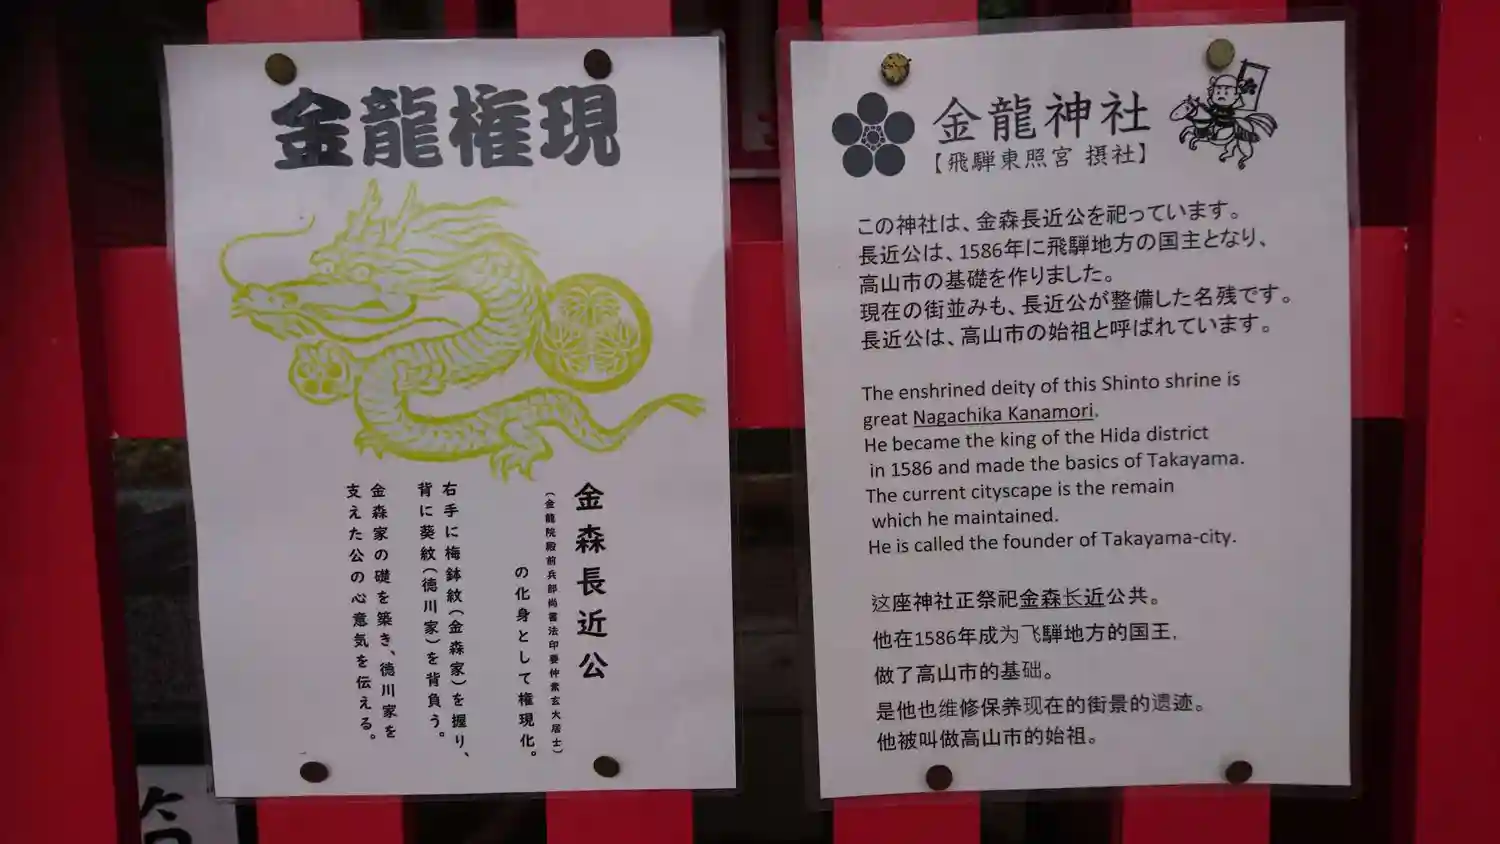 金龍権現
金森長近公
(金龍院殿前兵部尚書法印要仲素玄大居士)
の化身として権現化。
右手に梅鉢紋(金森家)を握り、
背に葵紋(徳川家)を背負う。
金森家の礎を築き、徳川家を
支えた公の心意気を伝える。
金龍神社
【飛騨東照宮 摂社】
この神社は、金森長近公を祀っています。
長近公は、1586年に飛騨地方の国主となり、
高山市の基礎を作りました。
現在の街並みも、長近公が整備した名残です。
長近公は、高山市の始祖と呼ばれています。
The enshrined deity of this Shinto shrine is
great Nagachika Kanamori.
He became the king of the Hida district
in 1586 and made the basics of Takayama.
The current cityscape is the remain
which he maintained.
He is called the founder of Takayama-city.
这座神社正祭祀金森长近公共。
他在1586年成为飞騨地方的国王,
做了高山市的基础。
是他也维修保养现在的街景的遗迹。
他被叫做高山市的始祖。